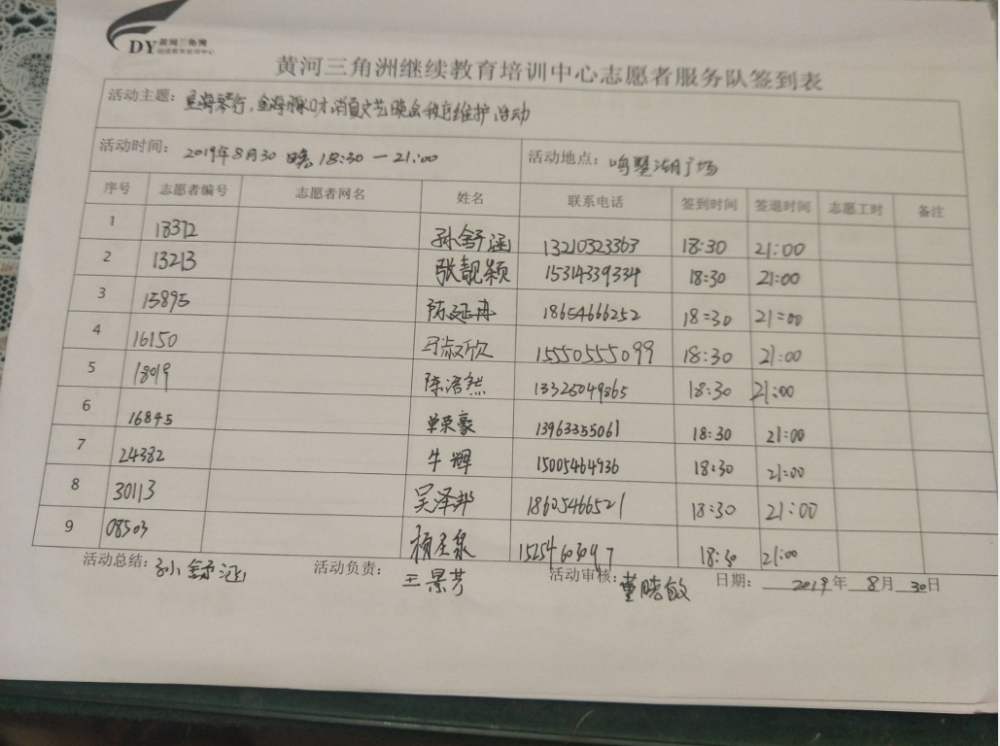 DY 黄河三角洲
黄河三角洲继续教育培训中心志愿者服务队签到表
活动主题：星海琴行、金海豚口才消夏文艺晚会秩序维护活动
活动时间： 2019年8月30 晚 18:30 — 21:00 活动地点：鸣翠湖广场
序号 志愿者编号 志愿者网名 姓名 联系电话 签到时间 签退时间 志愿工时 备注
1 18372 孙舒涵 13210323363 18:30 21:00
2 13213 张靓颖 15314339334 18:30 21:00
3 15895 陈延冉 18654666252 18:30 21:00
4 16150 马淑欣 15550555099 18:30 21:00
5 18019 陈浩然 13325049865 18:30 21:00
6 16845 单荣豪 13963355061 18:30 21:00
7 24382 牛辉 15005464936 18:30 21:00
8 30113 吴泽邦 18605466521 18:30 21:00
9 08503 杨圣泉 15254603097 18:30 21:00
活动总结：孙舒涵 活动负责：王景芳 活动审核：董晓敏 日期： 2019年 8月 30日